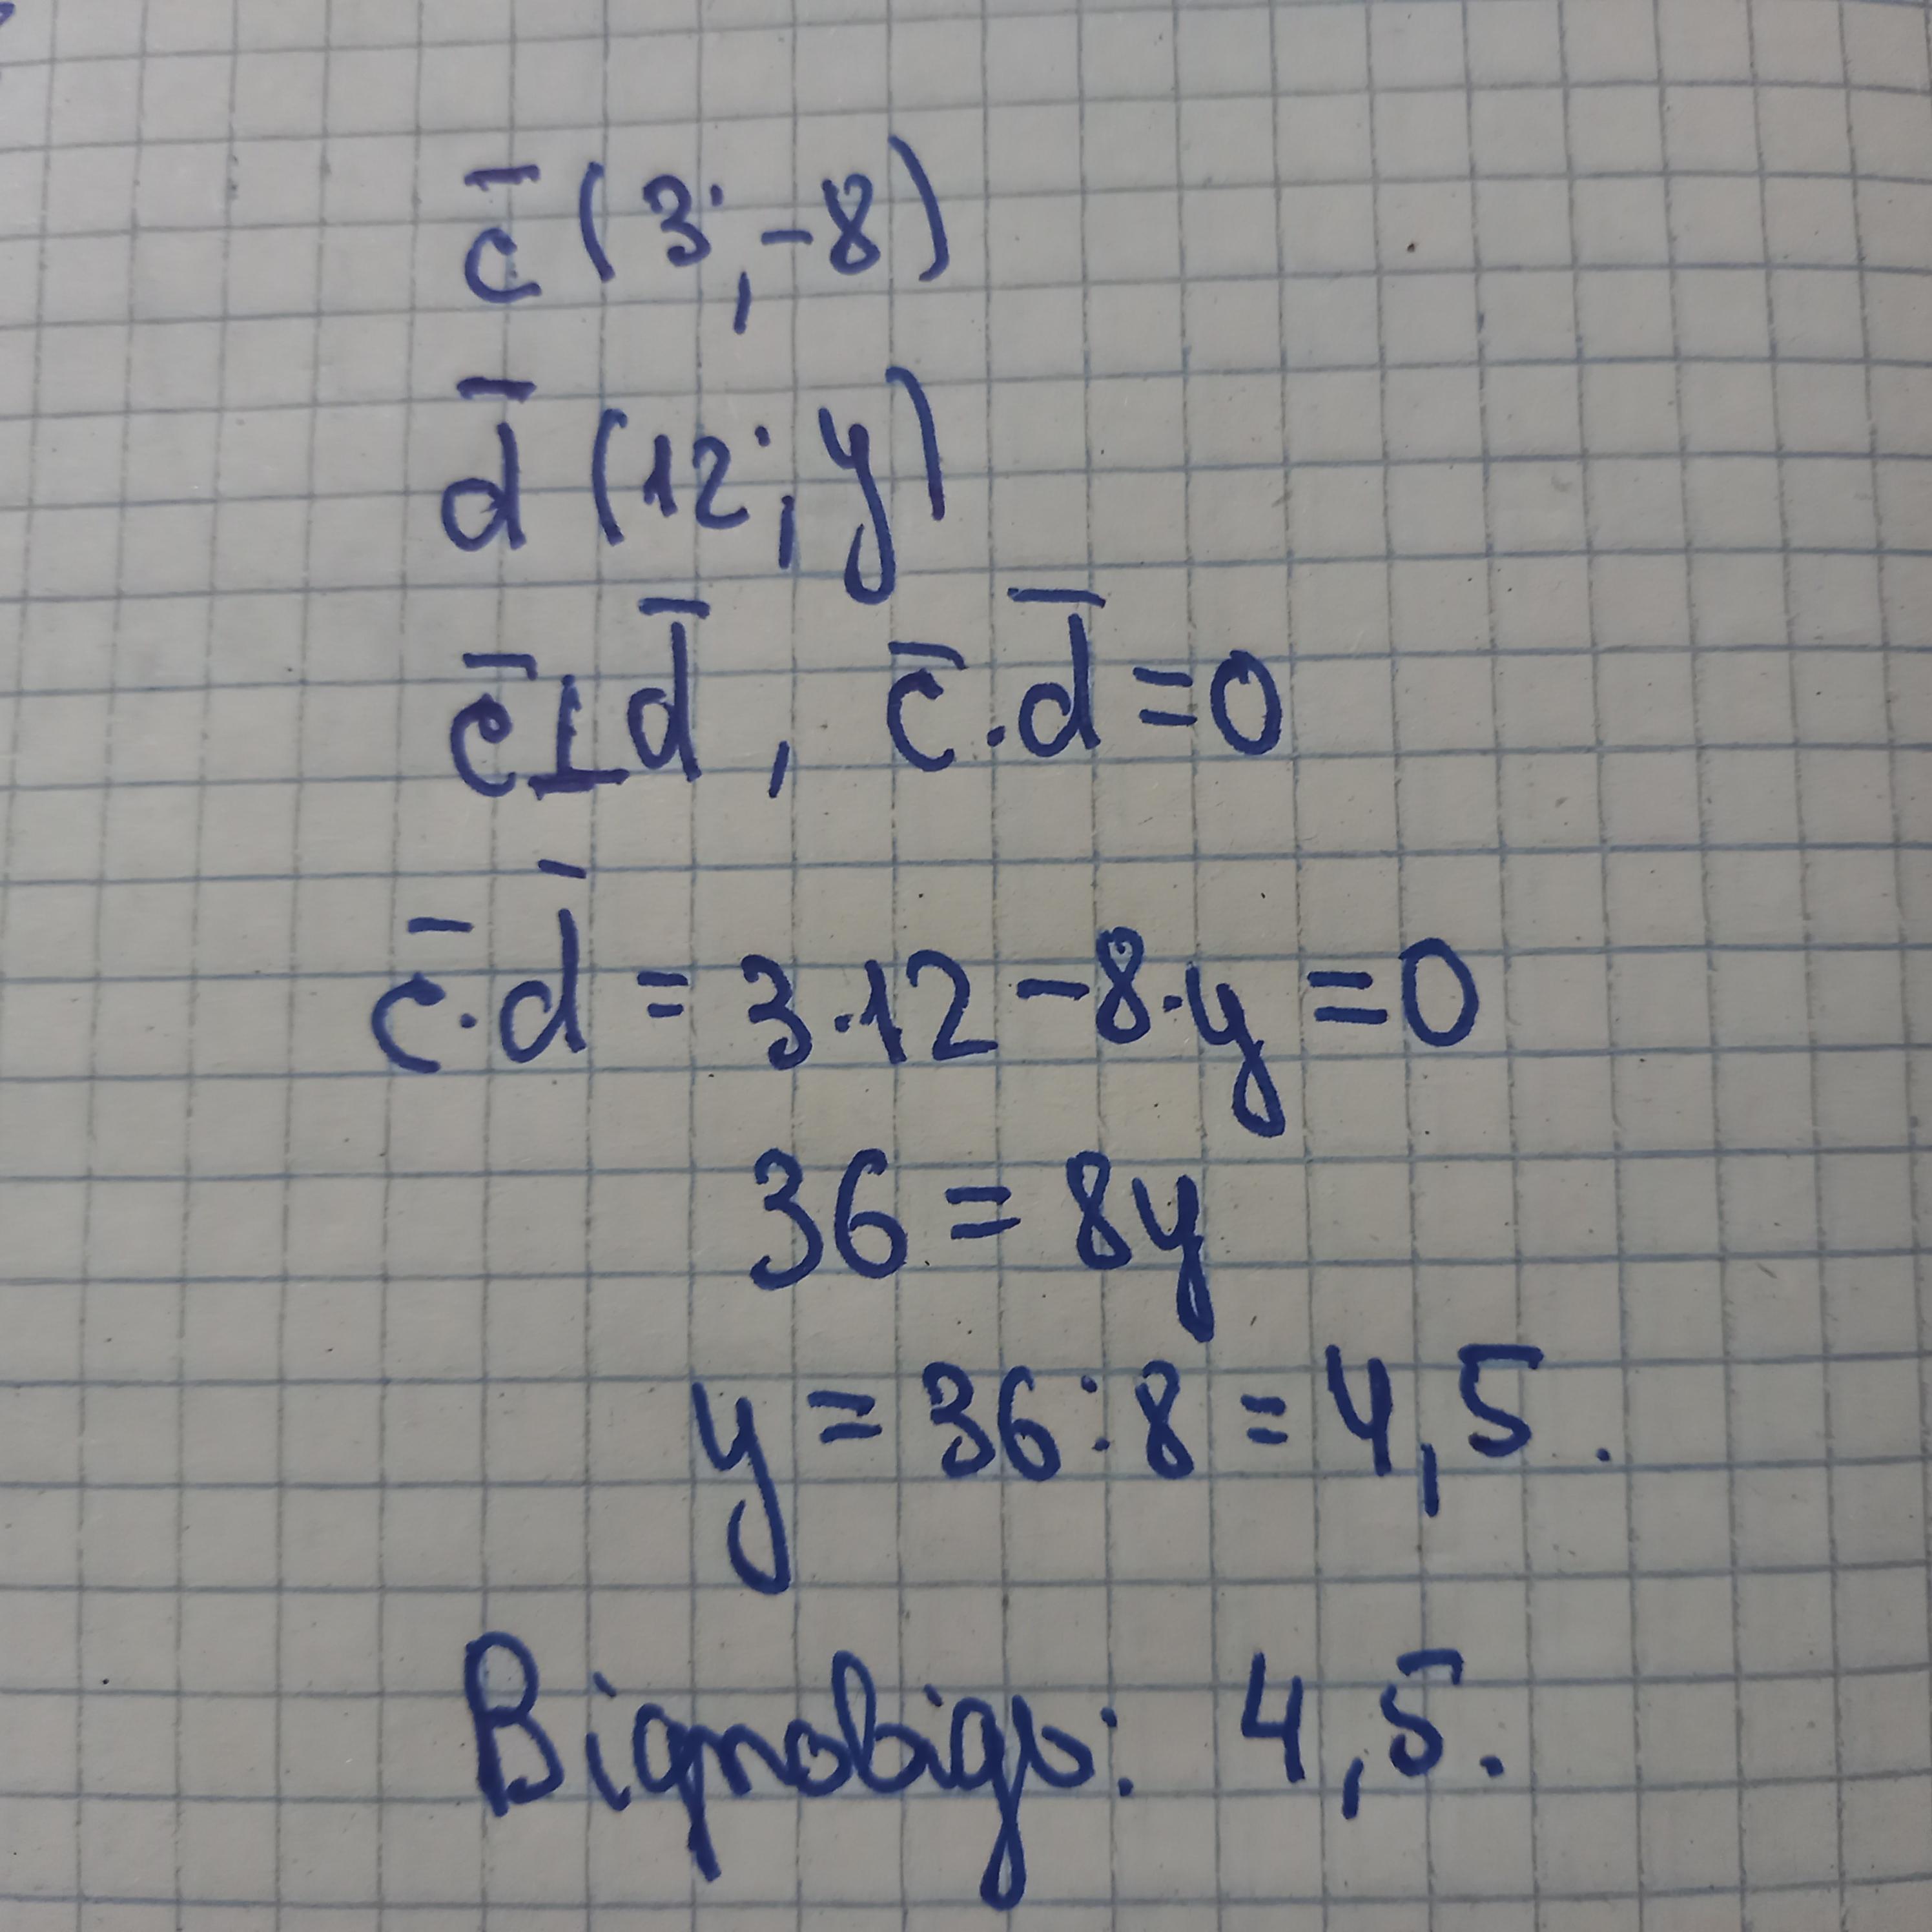 c̄ (3; -8)
d̄ (12; y)
c̄ ⊥ d̄, c̄ · d̄ = 0
c̄ · d̄ = 3 · 12 - 8 · y = 0
36 = 8y
y = 36 : 8 = 4,5.
Відповідь: 4,5.